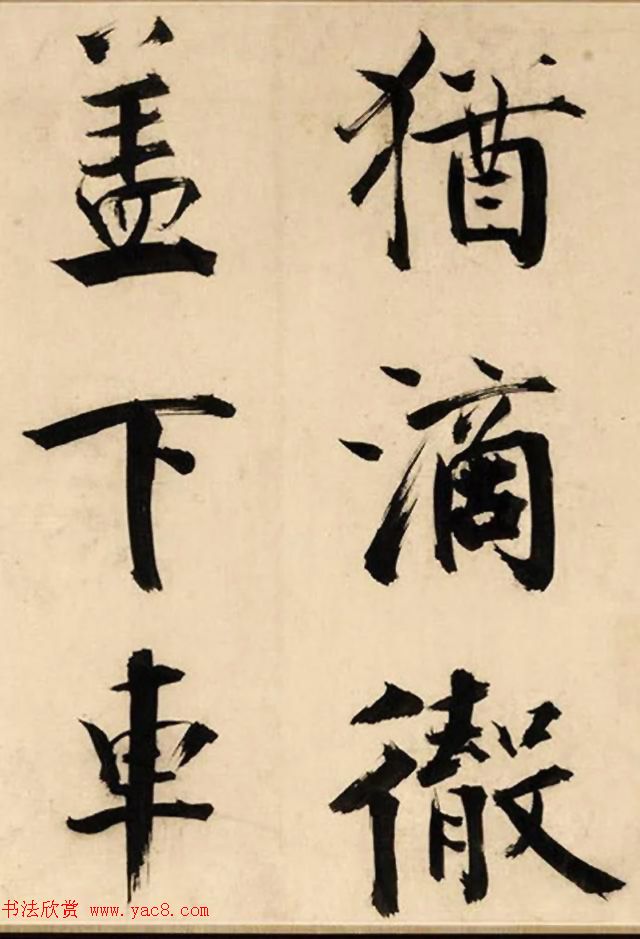 猶滴徹
盖下車
书法欣赏 www.yac8.com